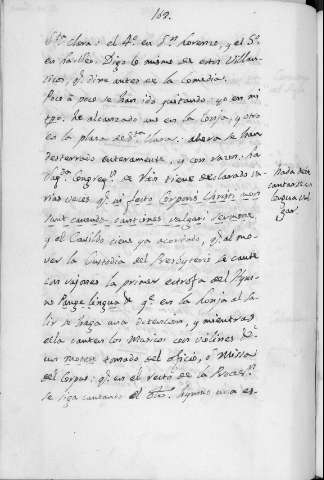 162.
Sta. Clara: el 4º. en Sn. Lorenzo, y el 5º.
en Digo lo mismo de estos Villan-
cicos, qe. dixe antes de la comedia.
Poco à poco se han ido quitando: yo en mi
tpo. he alcanzado uno en la Lonja, y otro
en la plaza de Sta. Clara: ahora se han
desterrado enteramente, y con razon: la
Sagda. Congregn. de Ritos tiene declarado va-
rias veces qe. in festo Corporis Christi non
sunt canendæ cantiones vulgari sermone,
y el Cavildo tiene ya acordado, qe. al mo-
ver la Custodia del Presbyterio se cante
con vajones la primer estrofa del Hym-
no Pange lingua: qe. en la Lonja al sa-
lir se haga una detencion, y mientras
ella canten los Musicos con violines &.
un motete tomado del oficio, ò Missa
del Corpus: qe. en el resto de la Procesn.
se siga cantando el dho. hymno una es-
Nada debe
cantarse en
lengua vul
gar.